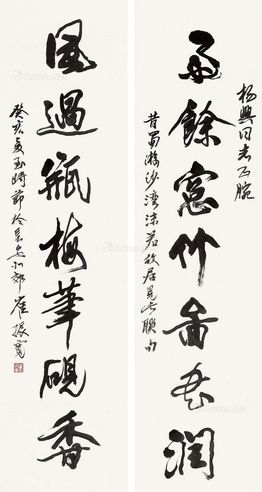 杨興同志正腕
雨餘窓竹啚书潤
昔蜀游沙湾沫若故居見此聯句
風過瓶梅筆硯香
癸亥夏至時節於長安北郊崔振寬